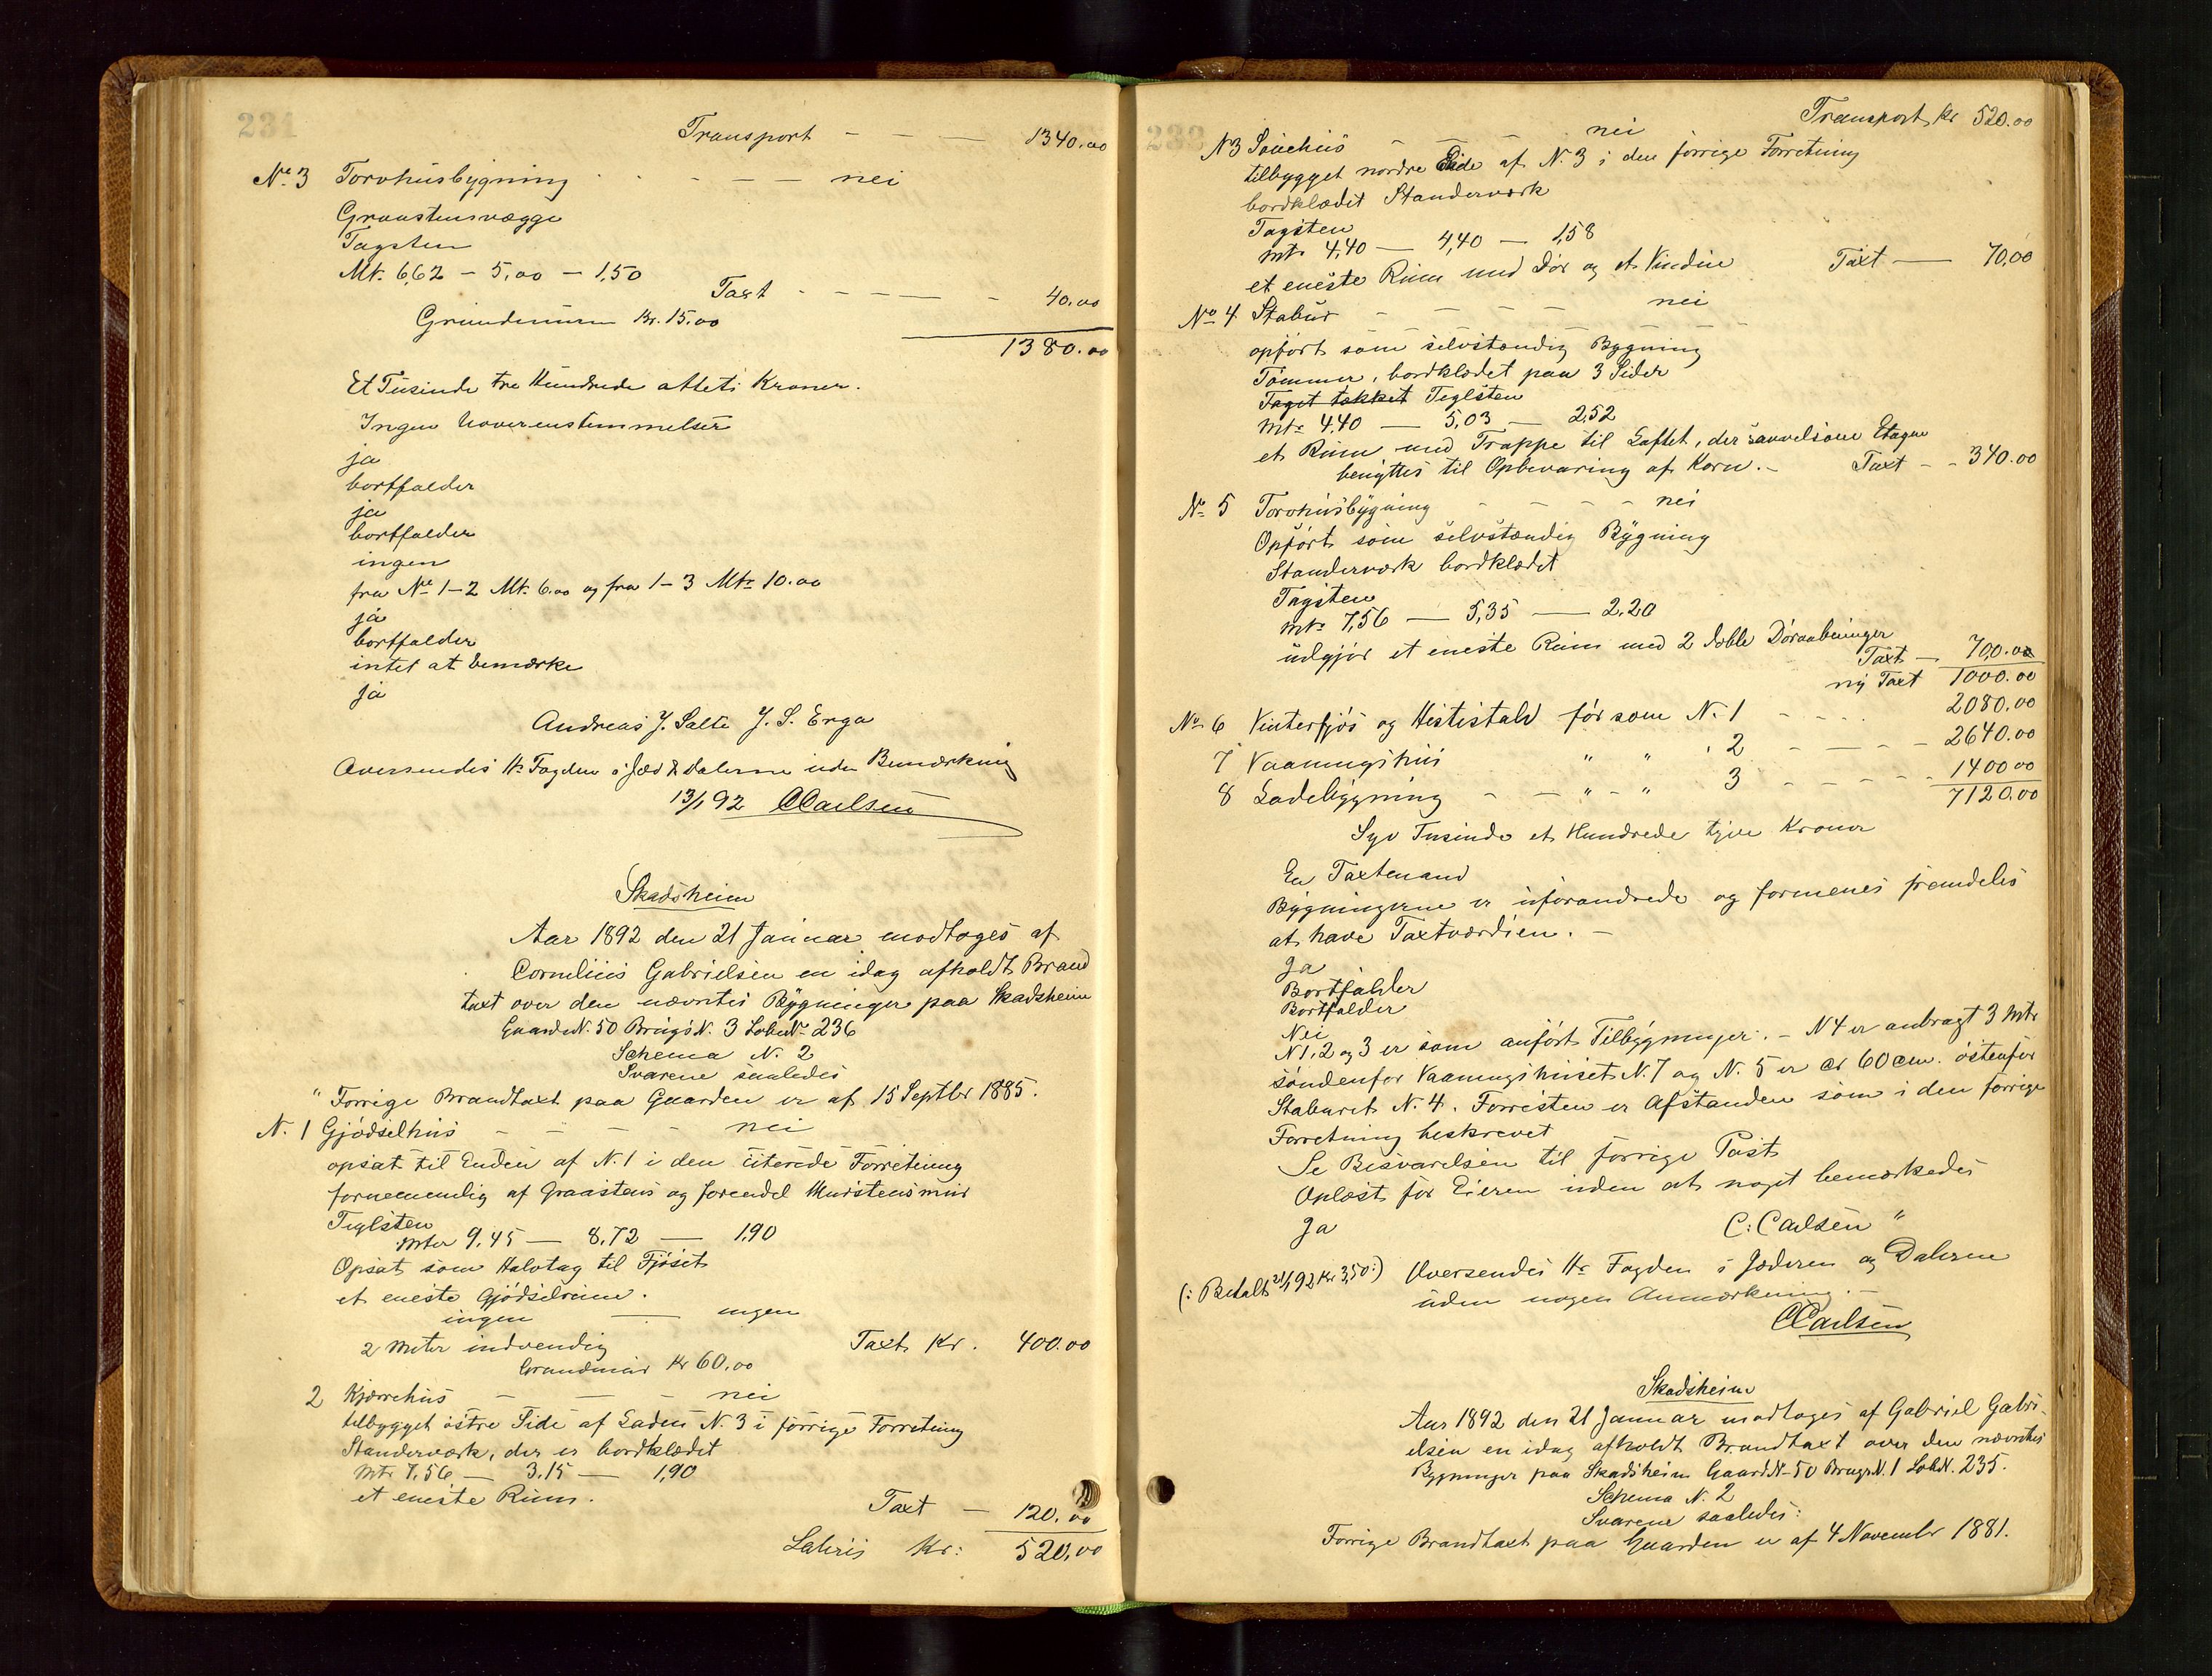 231
Transport - - - 1340.00
No. 3 Torvhusbygning - - - nei
Graastensvægge
Tagsten
Mt. 6,62 - 5,00 - 1,50
Taxt - - - - 40.00
Grundmuren Kr. 15.00
1380.00
Et Tusinde tre Hundrede otteti Kroner.
Ingen Uoverenstemmelser
ja
bortfalder
ja
bortfalder
ingen
fra No 1-2 Mt. 6.00 og fra 1-3 Mtr 10.00
ja
bortfalder
intet at bemærke
ja
Andreas J. Salte J. S. Erga
Oversendes Hr Fogden i Jæd & Dalerne uden Bemærkning
13/1 92 CCarlsen
Skadsheim
Aar 1892 den 21 Januar modtoges af
Cornelius Gabrielsen en idag afholdt Brand
taxt over den nævntes Bygninger paa Skadsheim
Gaards N. 50 Brugs N. 3 Løbe No 236
Schema N. 2
Svarene saaledes
" Forrige Brandtaxt paa Gaarden er af 15 Septbr 1885.
N. 1 Gjödselhus - - - - nei
opsat til Enden af N. 1 i den citerede Forretning
fornemmelig af Graastens og forendel Murstensmur
Teglsten
Mtr 9,45 - 8,72 - 1,90
Opsat som Halvtag til Fjöset
et eneste Gjödselrum.
ingen - ingen
2 Meter indvendig Taxt Kr. 400.00
Grundmur Kr 60.00
2 Kjærrehus - - - nei
tilbygget östre Side af Laden N. 3 i forrige Forretning
Standerværk, der er bordklædet
Mtr 7,56 - 3,15 - 1,90
et eneste Rum.
Taxt - 120.00
Lateris Kr: 520,00
233
Transport Kr 520.00
N 3 - - - nei
tilbygget nordre Side af N. 3 i den forrige Forretning
bordklædet Standerværk
Tagsten
Mtr 4,40 - 4,40 - 1,58
et eneste Rum med Dör og et Vindue Taxt - 70,00
No 4 Stabur - - - - nei
opfört som selvstændig Bygning
Tömmer, bordklædet paa 3 Sider
Taget tækket Teglsten
Mtr 4,40 - 5,03 - 2,52
et Rum med Trappe til Loftet, der saavelsom Etagen
benyttes til Opbevaring af Korn. - Taxt - - 340.00
No 5 Torvhusbygning - - - - nei
Opfört som selvstændig Bygning
Standerværk bordklædet
Tagsten
Mtr 7,56 - 5,35 - 2,20
udgjör et eneste Rum med 2 doble Döraabninger
Taxt - 70,00
ny Taxt 1000.00
No 6 Vinterfjös og Hestestald för som N. 1 - - - - 2080.00
7 Vaaningshus " " " 2 - - - - 2640.00
8 Ladebygning - - " - " 3 - - - - 1400 00
7120.00
Syv Tusinde et Hundrede tyve Kroner
En Taxtmand
Bygningerne er uforandrede og formenes fremdeles
at have Taxtværdien. -
Ja
Bortfalder
Bortfalder
Nei
N 1, 2 og 3 er som anfört Tilbygninger. - N 4 er anbragt 3 Mtr
söndenfor Vaaningshuset N. 7 og N. 5 er cr 60 cm. östenfor
Staburet N. 4. Forresten er Afstanden som i den forrige
Forretning beskrevet
Se Besvarelsen til forrige Post
Oplæst for Eieren uden at noget bemærkedes
Ja
C: Carlsen "
(: Betalt 21/1 92 Kr 3,50 :) Oversendes Hr Fogden i Jæderen og Dalerne
uden nogen Anmærkning. -
CCarlsen
Skadsheim
Aar 1892 den 21 Januar modtoges af Gabriel Gabri-
elsen en idag afholdt Brandtaxt over den nævntes
Bygninger paa Skadsheim Gaards N. 50 Brugs N. 1 Löbe N. 235.
Schema N. 2
Svarene saaledes:
Forrige Brandtaxt paa Gaarden er af 4 Novembr 1881.